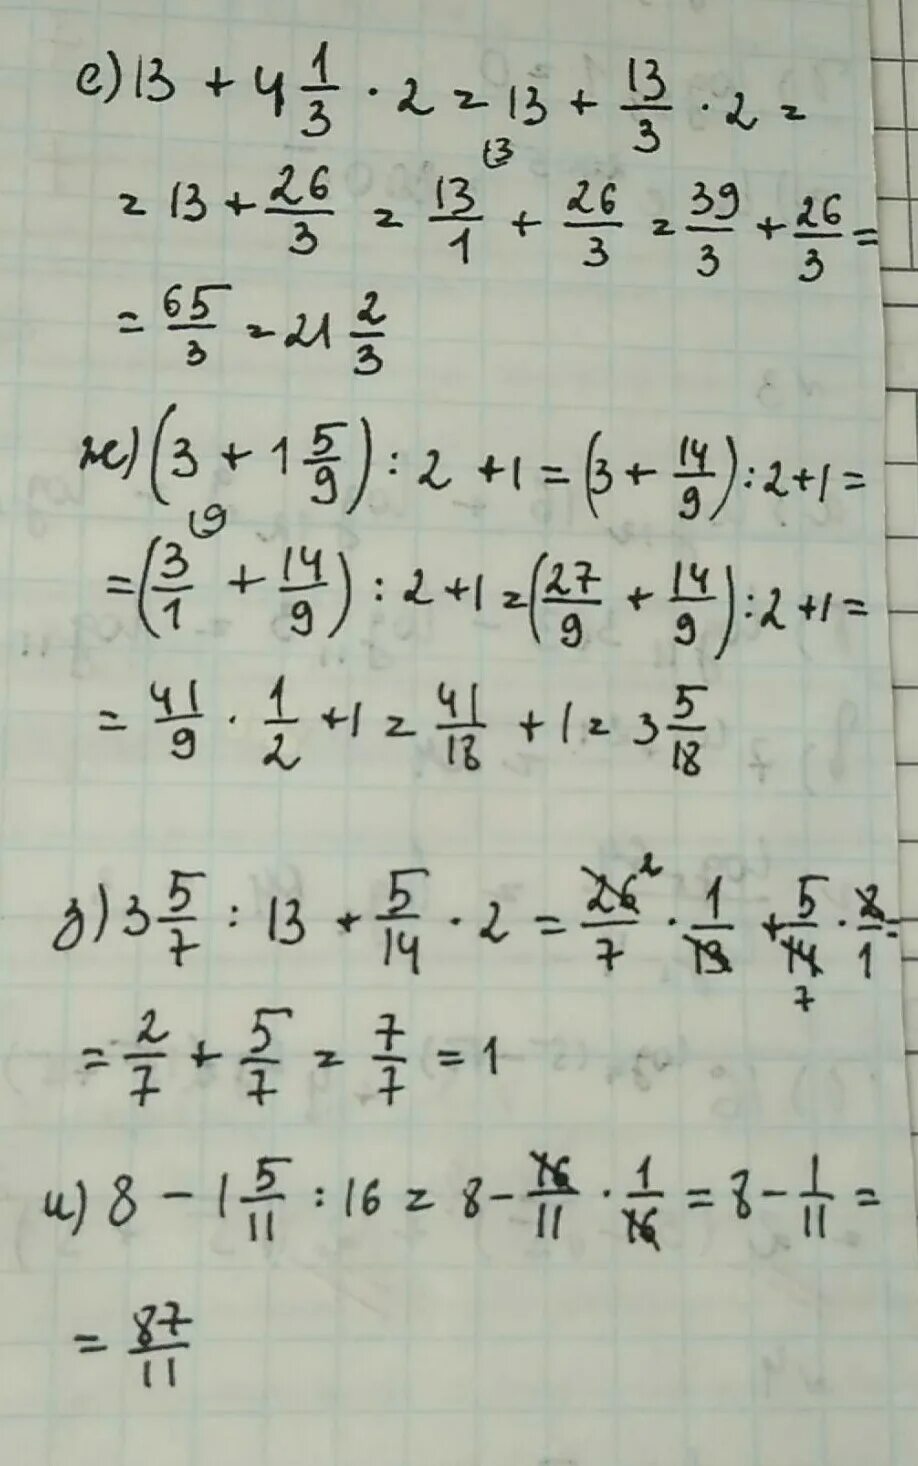 е) 13 + 4 1/3 · 2 = 13 + 13/3 · 2 =
= 13 + 26/3 = 13/1 (3 + 26/3 = 39/3 + 26/3 =
= 65/3 = 21 2/3
ж) (3 + 1 5/9) : 2 + 1 = (3 + 14/9) : 2 + 1 =
= (3/1 (9 + 14/9) : 2 + 1 = (27/9 + 14/9) : 2 + 1 =
= 41/9 · 1/2 + 1 = 41/18 + 1 = 3 5/18
з) 3 5/7 : 13 + 5/14 · 2 = 26 2/7 · 1/13 + 5/14 7 · 2/1 =
= 2/7 + 5/7 = 7/7 = 1
и) 8 - 1 5/11 : 16 = 8 - 16/11 · 1/16 = 8 - 1/11 =
= 87/11